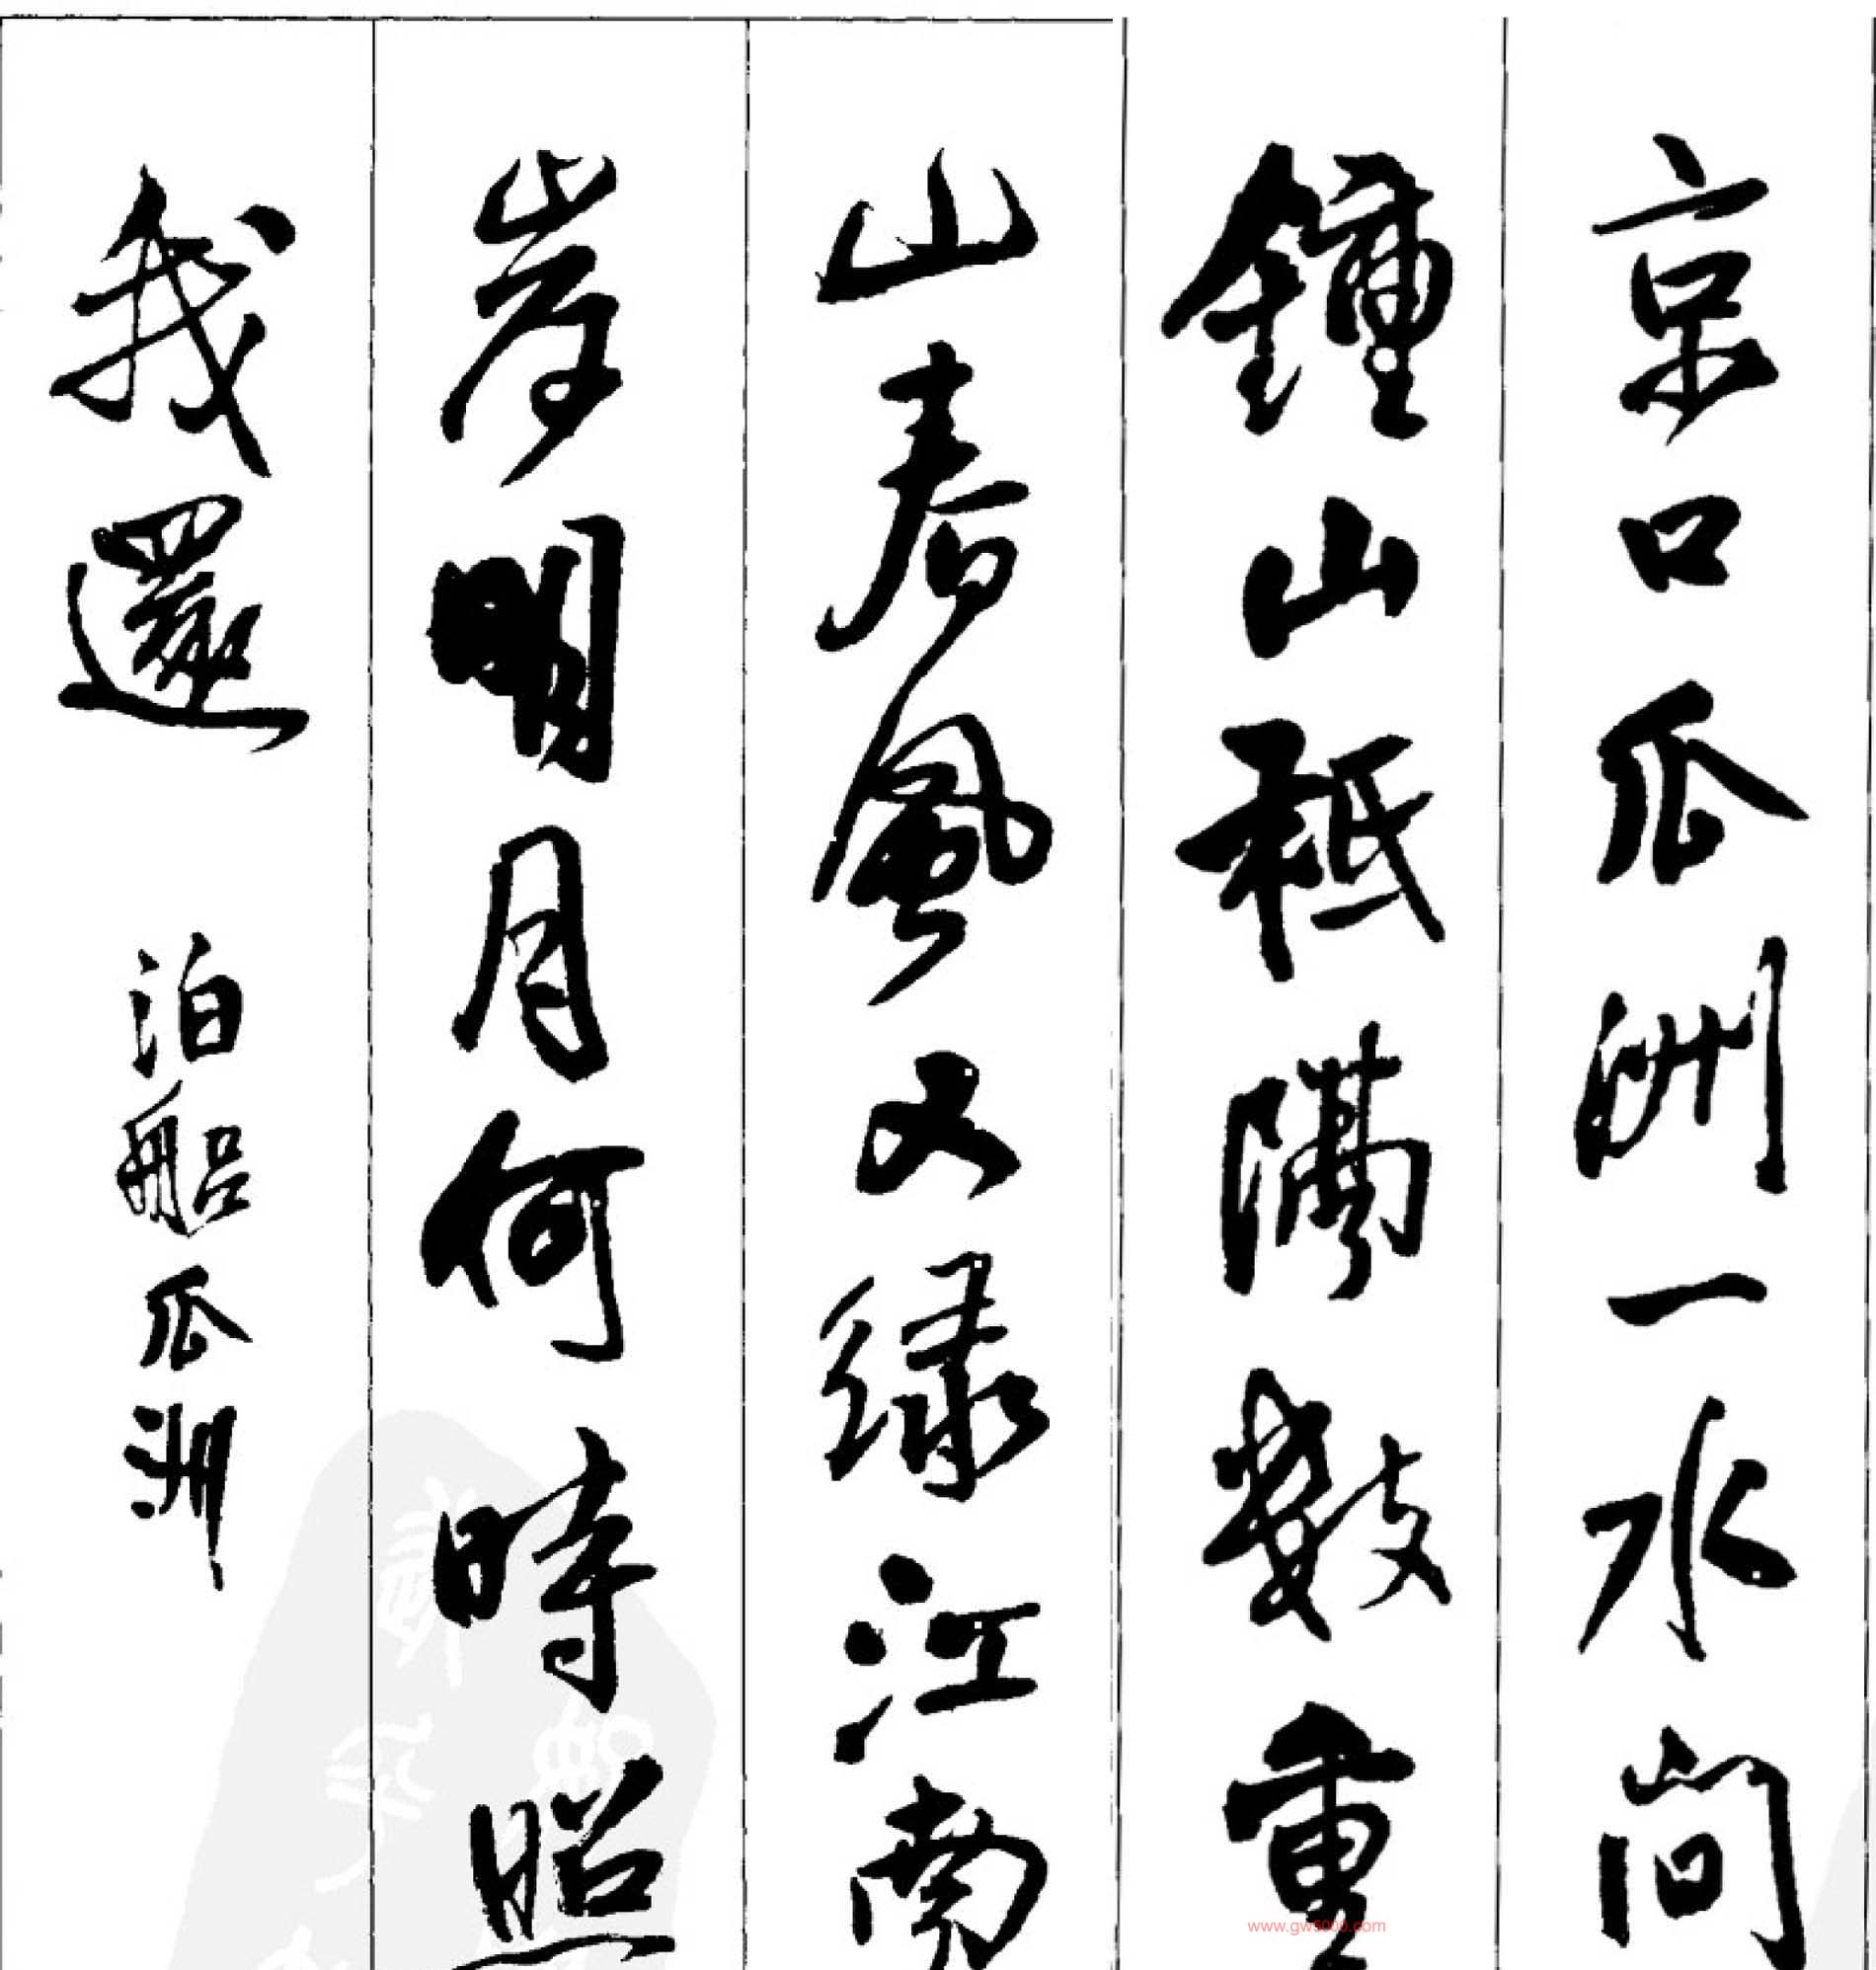 京口瓜洲一水间
鍾山秖隔數重
山春風又绿江南
岸明月何時照
我還 泊船瓜洲
www.gw5000.com